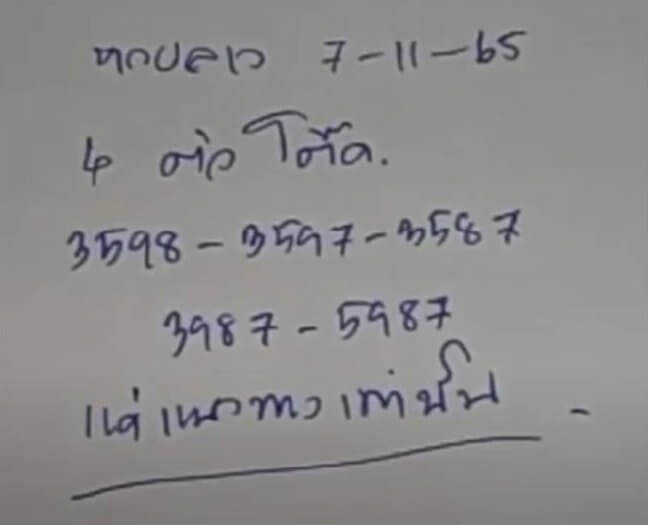 หวยลาว 7-11-65
4 ตัวโต๊ด.
3598-3597-3587
3987-5987
แค่แนวทางเท่านั้น -